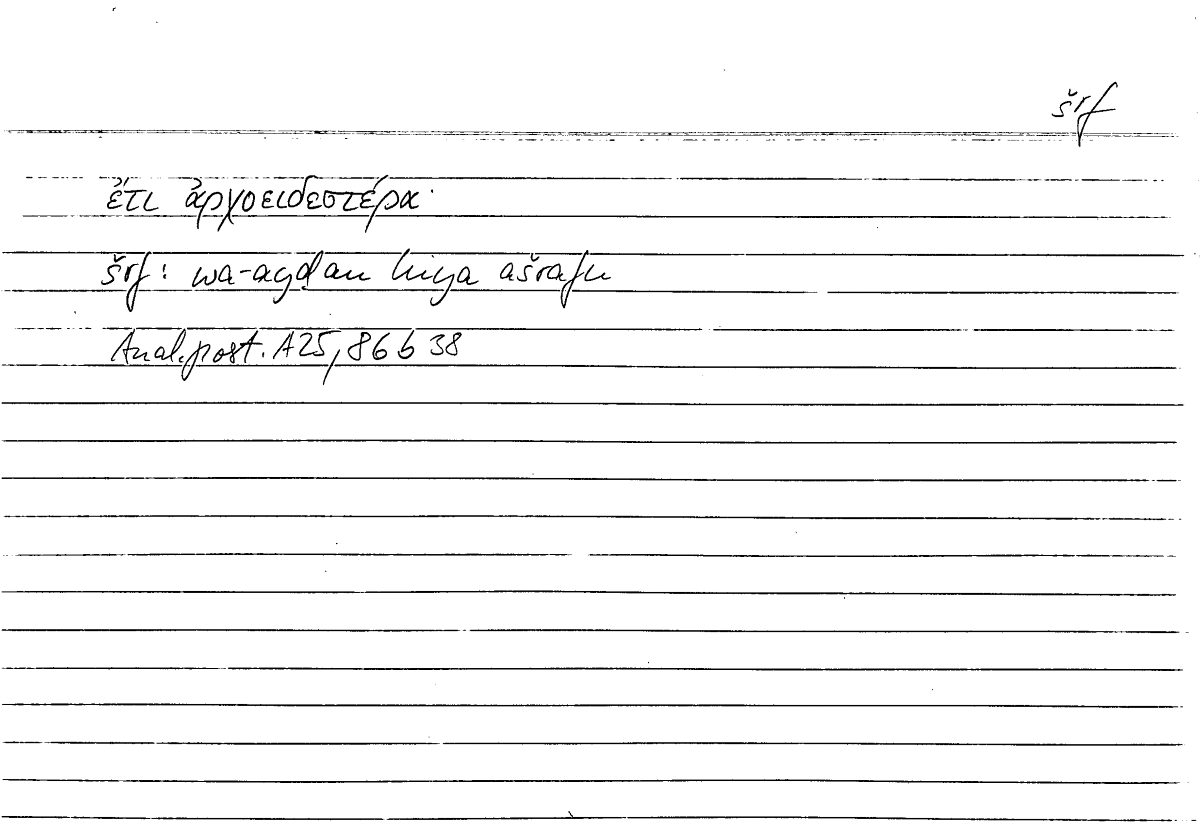 šrf
ἔτι ἀρχοειδεστέρα·
šrf: wa-aydan hiya ašrafu
Anal.post. A25, 86 b 38